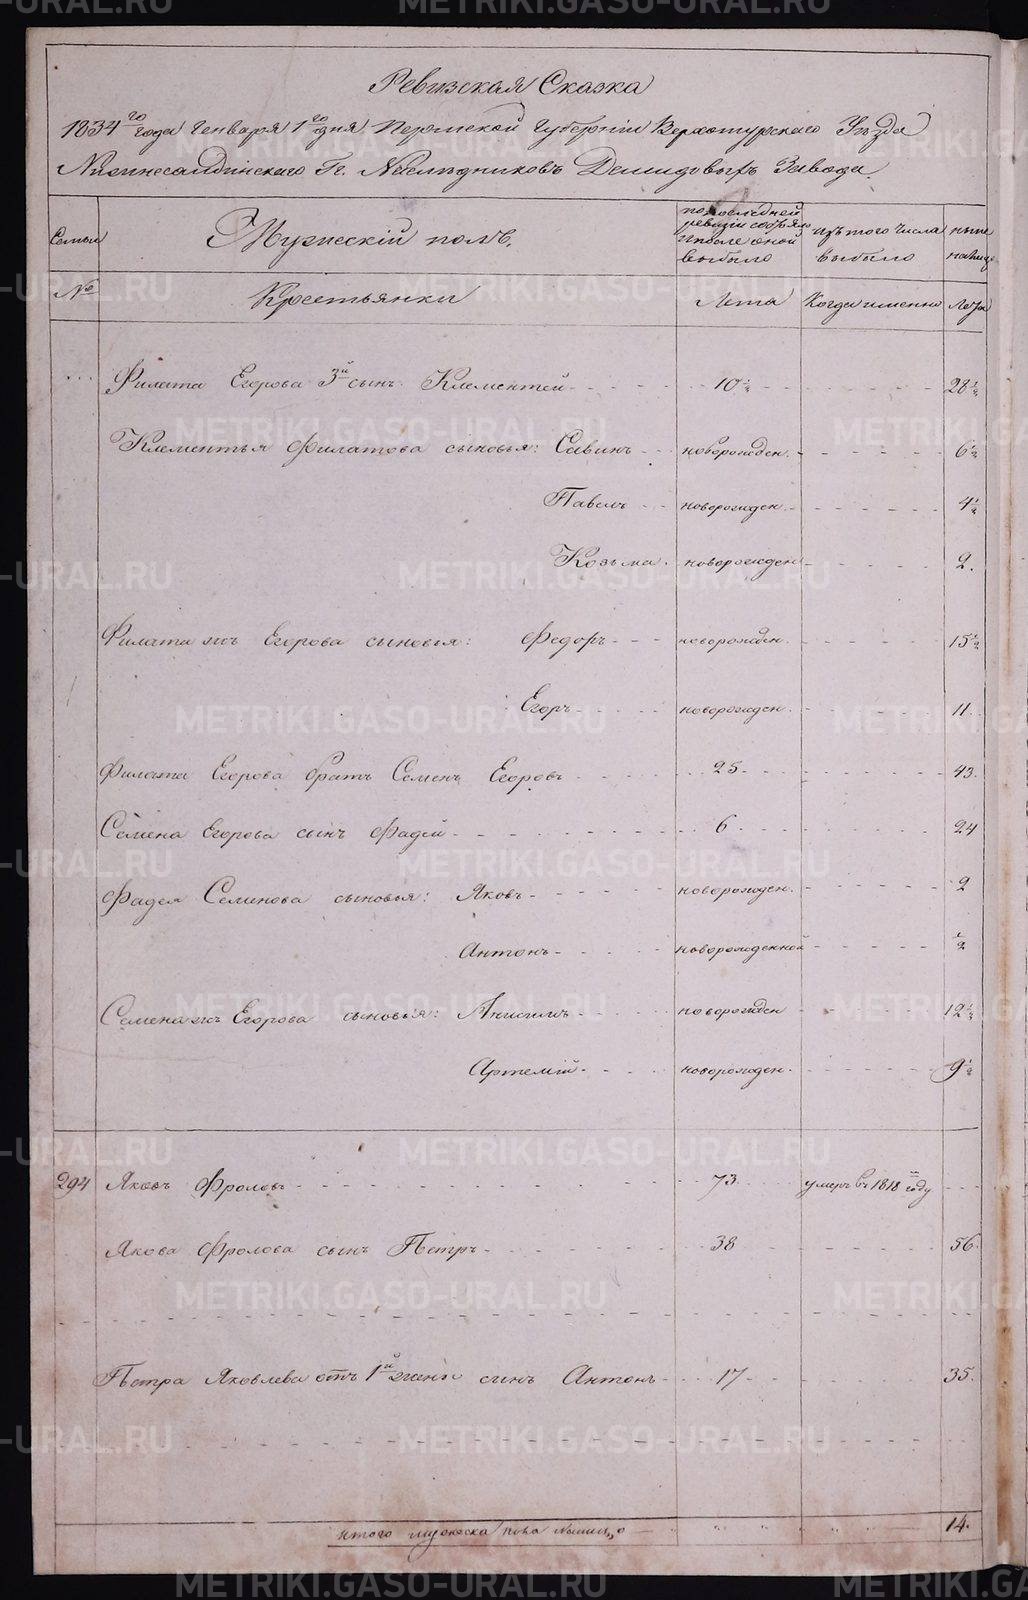 Ревизская Сказка
1834го года Генваря 1го дня Пермской Губернии Верхотурскаго Уезда
Нижнесалдинскаго Гг. Наследниковъ Демидовыхъ Завода
Семьи
Мужескій полъ.
по последней
ревизіи
и после оной
выбыло
изъ того числа
выбыло
ныне
на лице
№
Крестьянки
Лета
Когда именно
Лета
Филата Егорова 3й сынъ Клементей 10½ 28½
Клементья Филатова сыновья: Савинъ новорожден. 6½
Павелъ новорожден. 4½
Козьма новорожден 2.
Филата жъ Егорова сыновья: Федоръ новорожден. 15½
Егоръ новорожден. 11
Филата Егорова братъ Семенъ Егоровъ 25. 43.
Семена Егорова сынъ Фадей 6 24
Фадея Семенова сыновья: Яковъ новорожден. 2
Антонъ новорожденной ½
Семена жъ Егорова сыновья: Анисимъ новорожден 12½
Артемій новорожден. 9½
294 Яковъ Фроловъ 73 умеръ въ 1818м году
Якова Фролова сынъ Петръ 38 56.
Петра Яковлева отъ 1й жены сынъ Антонъ 17 35.
итого мужеска пола 14.
METRIKI.GASO-URAL.RU